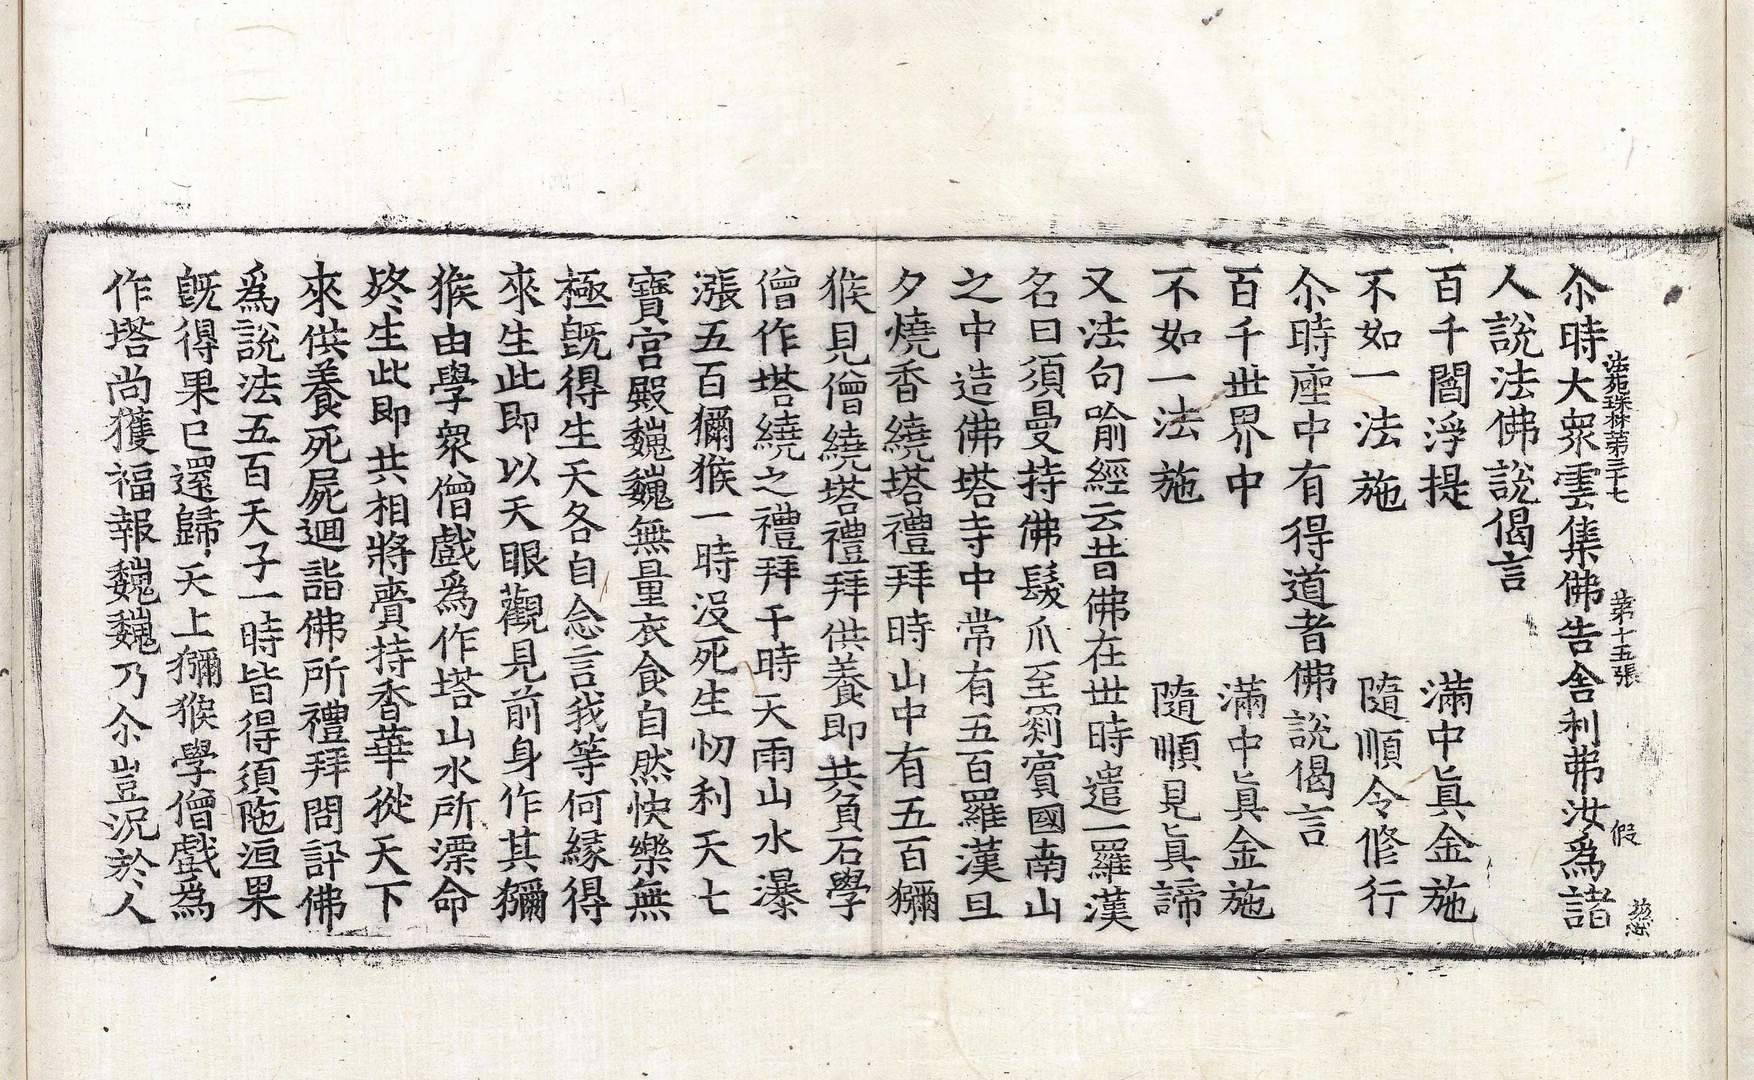 法苑珠林第三十七 第十五張 假
尒時大眾雲集佛告舍利弗汝爲諸
人說法佛說偈言
百千閻浮提 滿中眞金施
不如一法施 隨順令修行
尒時座中有得道者佛說偈言
百千世界中 滿中眞金施
不如一法施 隨順見眞諦
又法句喻經云昔佛在世時遣一羅漢
名曰須曼持佛髮爪至罽賓國南山
之中造佛塔寺中常有五百羅漢旦
夕燒香繞塔禮拜時山中有五百獼
猴見僧繞塔禮拜供養即共負石學
僧作塔繞之禮拜于時天雨山水瀑
漲五百獼猴一時没死生忉利天七
寶宮殿巍巍無量衣食自然快樂無
極旣得生天各自念言我等何緣得
來生此即以天眼觀見前身作其獼
猴由學衆僧戲爲作塔山水所漂命
終生此即共相將賷持香華從天下
來供養死屍迴詣佛所禮拜問訊佛
爲說法五百天子一時皆得須陁洹果
旣得果已還歸天上獼猴學僧戲爲
作塔尚獲福報巍巍乃尒豈況於人